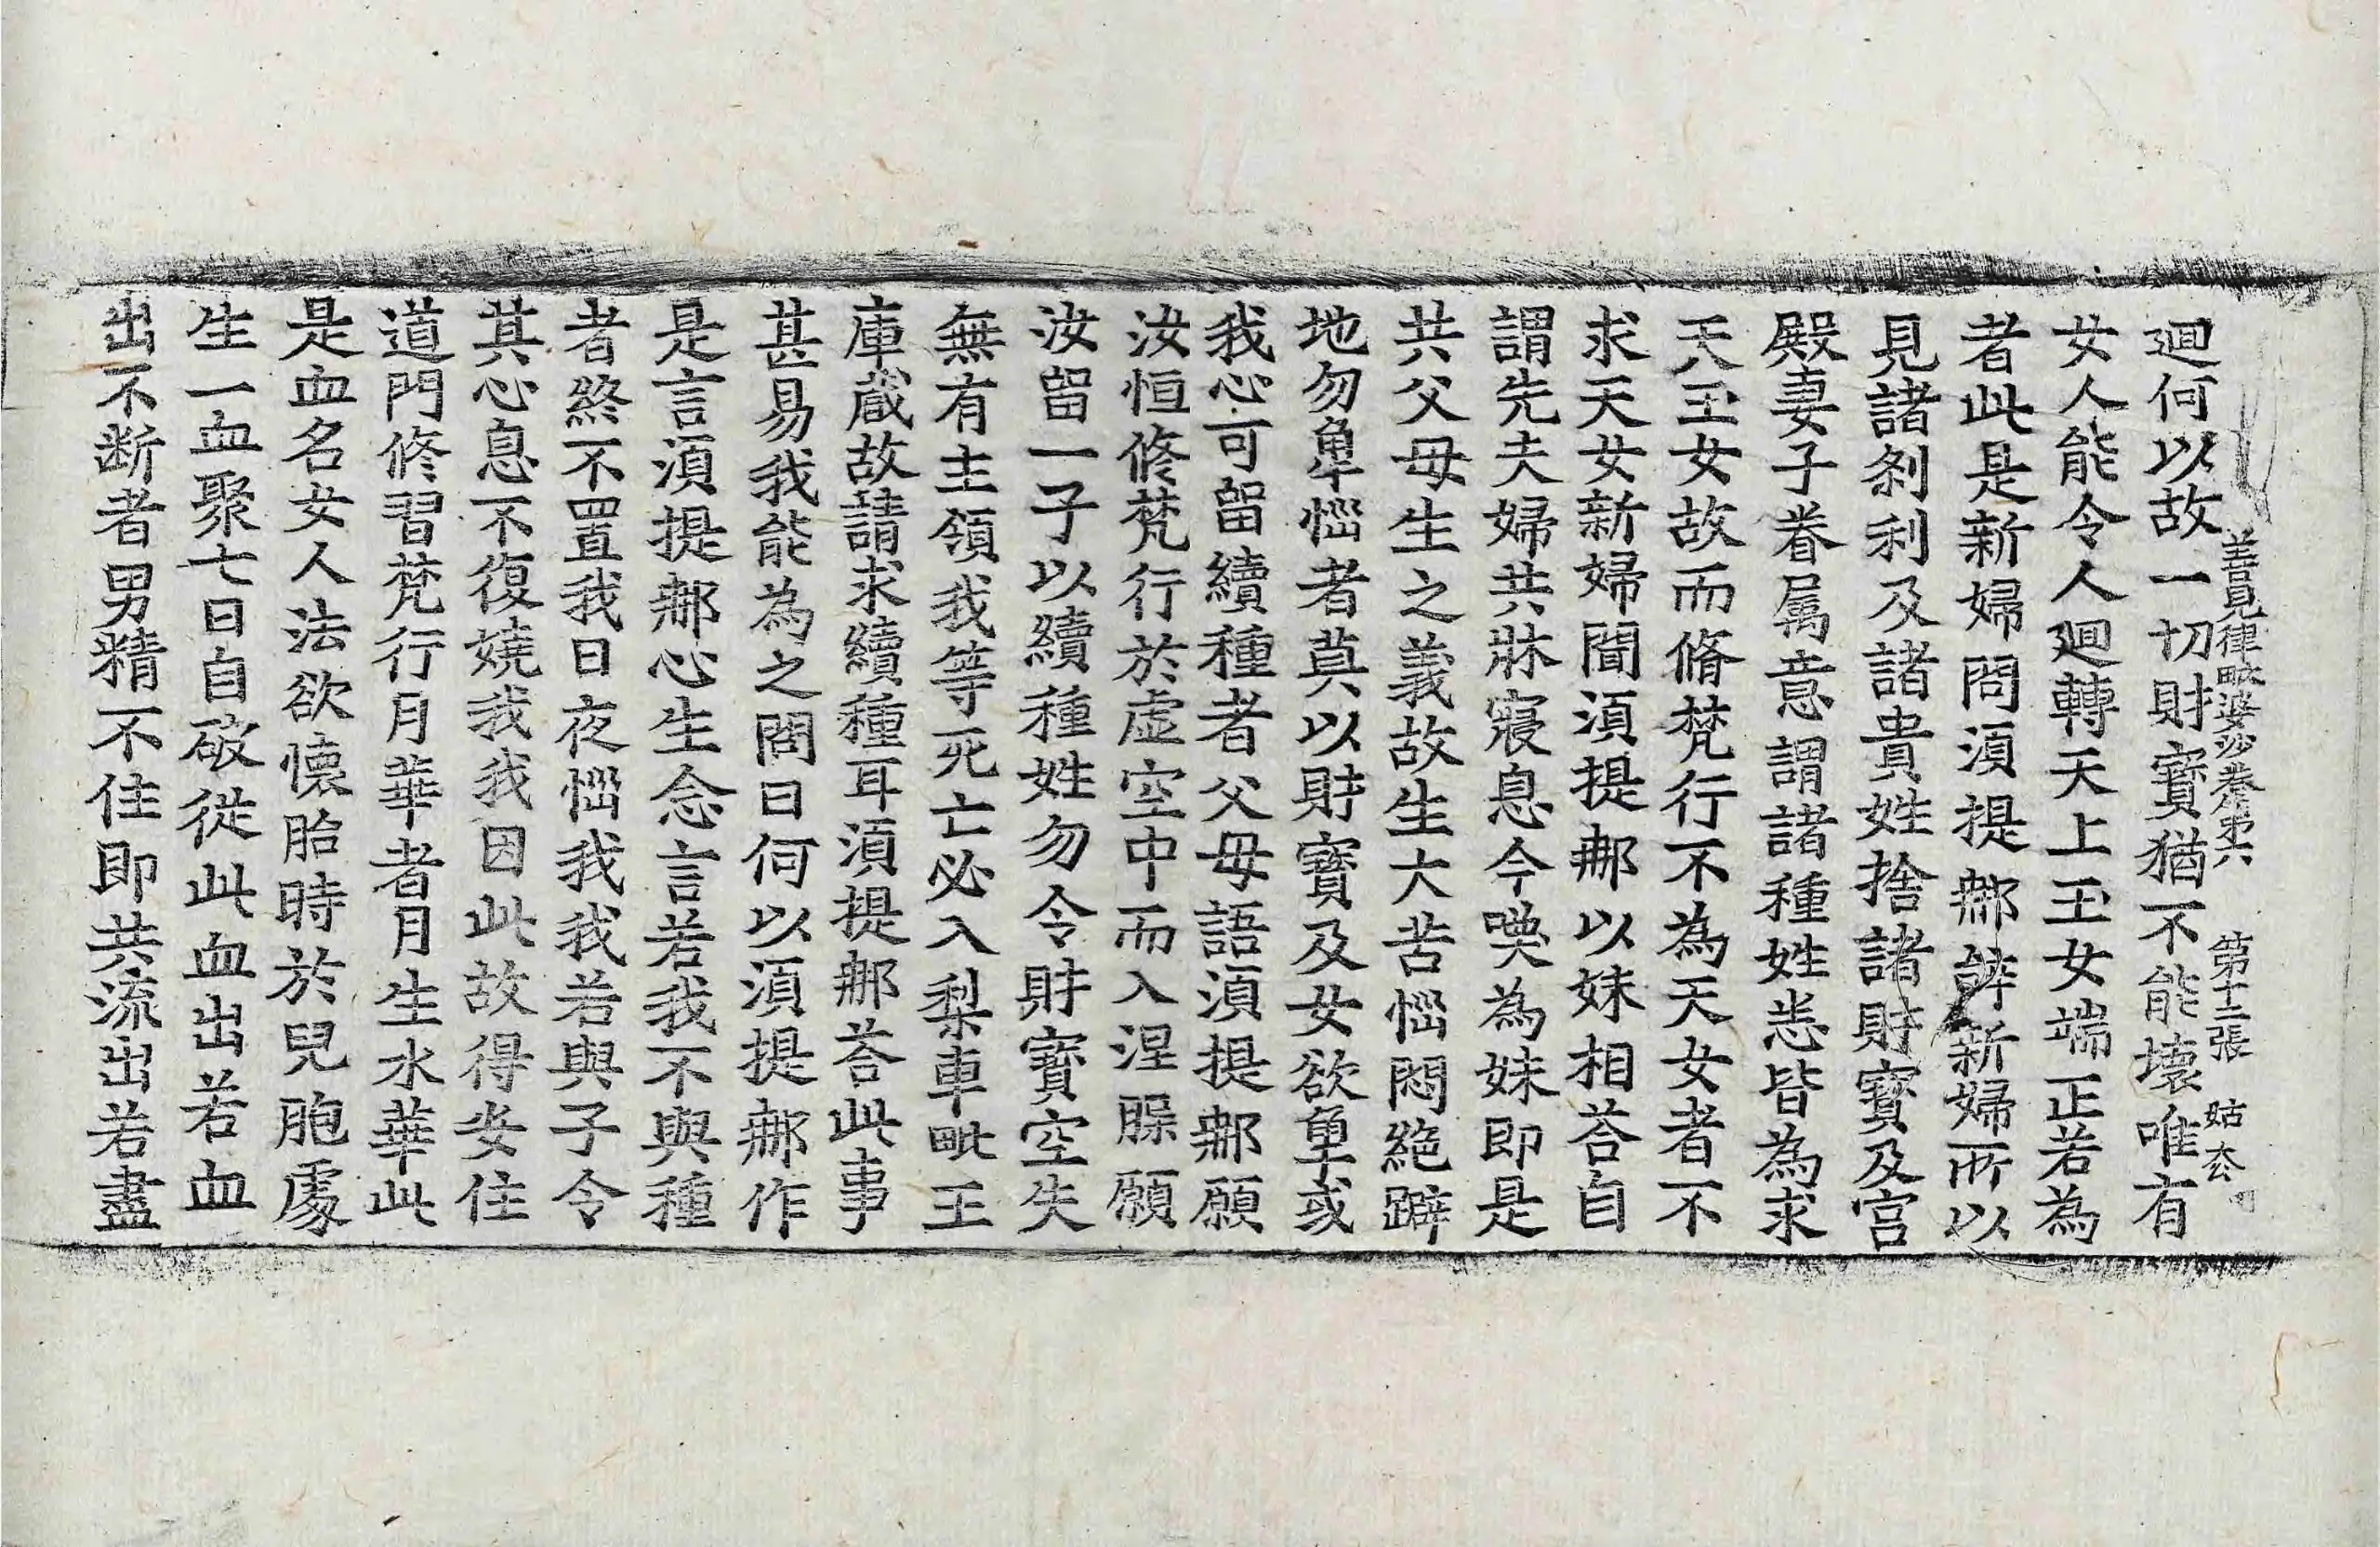 善見律毗婆沙卷第六 第十三張 姑
迴何以故一切財寶猶不能壞唯有
女人能令人迴轉天上玉女端正若為
者此是新婦問湏提䣕辭新婦所以
見諸刹利及諸貴姓捨諸財寶及宫
殿妻子眷属意謂諸種姓悉皆為求
天玉女故而脩梵行不為天女者不
求天女新婦聞湏提䣕以妹相荅自
謂先夫婦共牀寢息今喚為妹即是
共父母生之義故生大苦惱悶絶躃
地勿𢆯惱者莫以財寶及女欲𢆯或
我心可留續種者父母語湏提䣕願
汝恒修梵行於虚空中而入涅槃願
汝留一子以續種姓勿令財寶空失
無有主領我等死亡必入梨車毗王
庫蔵故請求續種耳湏提䣕荅此事
甚易我能為之問曰何以湏提䣕作
是言湏提䣕心生念言若我不與種
者終不置我日夜惱我我若與子令
其心息不復嬈我我因此故得安住
道門修習梵行月華者月生水華此
是血名女人法欲懷胎時於兒胞處
生一血聚七日自破從此血出若血
出不断者男精不住即共流出若盡